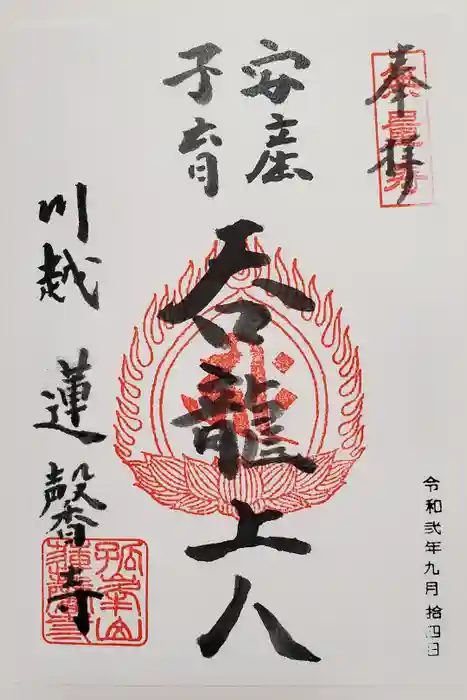 奉拝
安産
子育
呑龍上人
川越 蓮馨寺
令和弐年九月拾四日